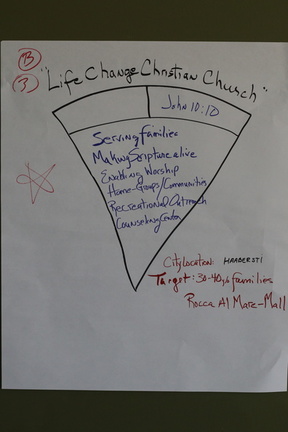 B
3
"Life Change Christian Church"
John 10:10
Serving Families
Making Scripture alive
Enabling Worship
Home-Groups/Communities
Recreational Outreach
Counseling Center
City location: HAABERSTI
Target: 30-40 yr families
Rocca Al Mare-Mall